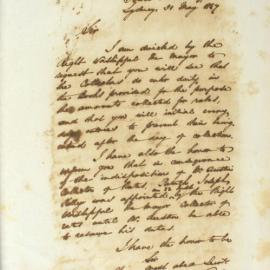 Sydney, 31 May 1887
Sir
I am directed by the
Right Worshipful the Mayor to
request that you will see that
the Collectors do enter daily in
the Books provided for the purpose
the amounts collected for rates,
and that you will initial every
entries to prevent their being
after the day of collection.
I have also the honor to
inform you that in consequence
of the indisposition of Mr
Collector of Rates, Joseph
was appointed by the Right
Worshipful the Mayor Collector of
rates until Mr be able
to resume his duties.
I have the honor to be
Sir
Your most obed Servt